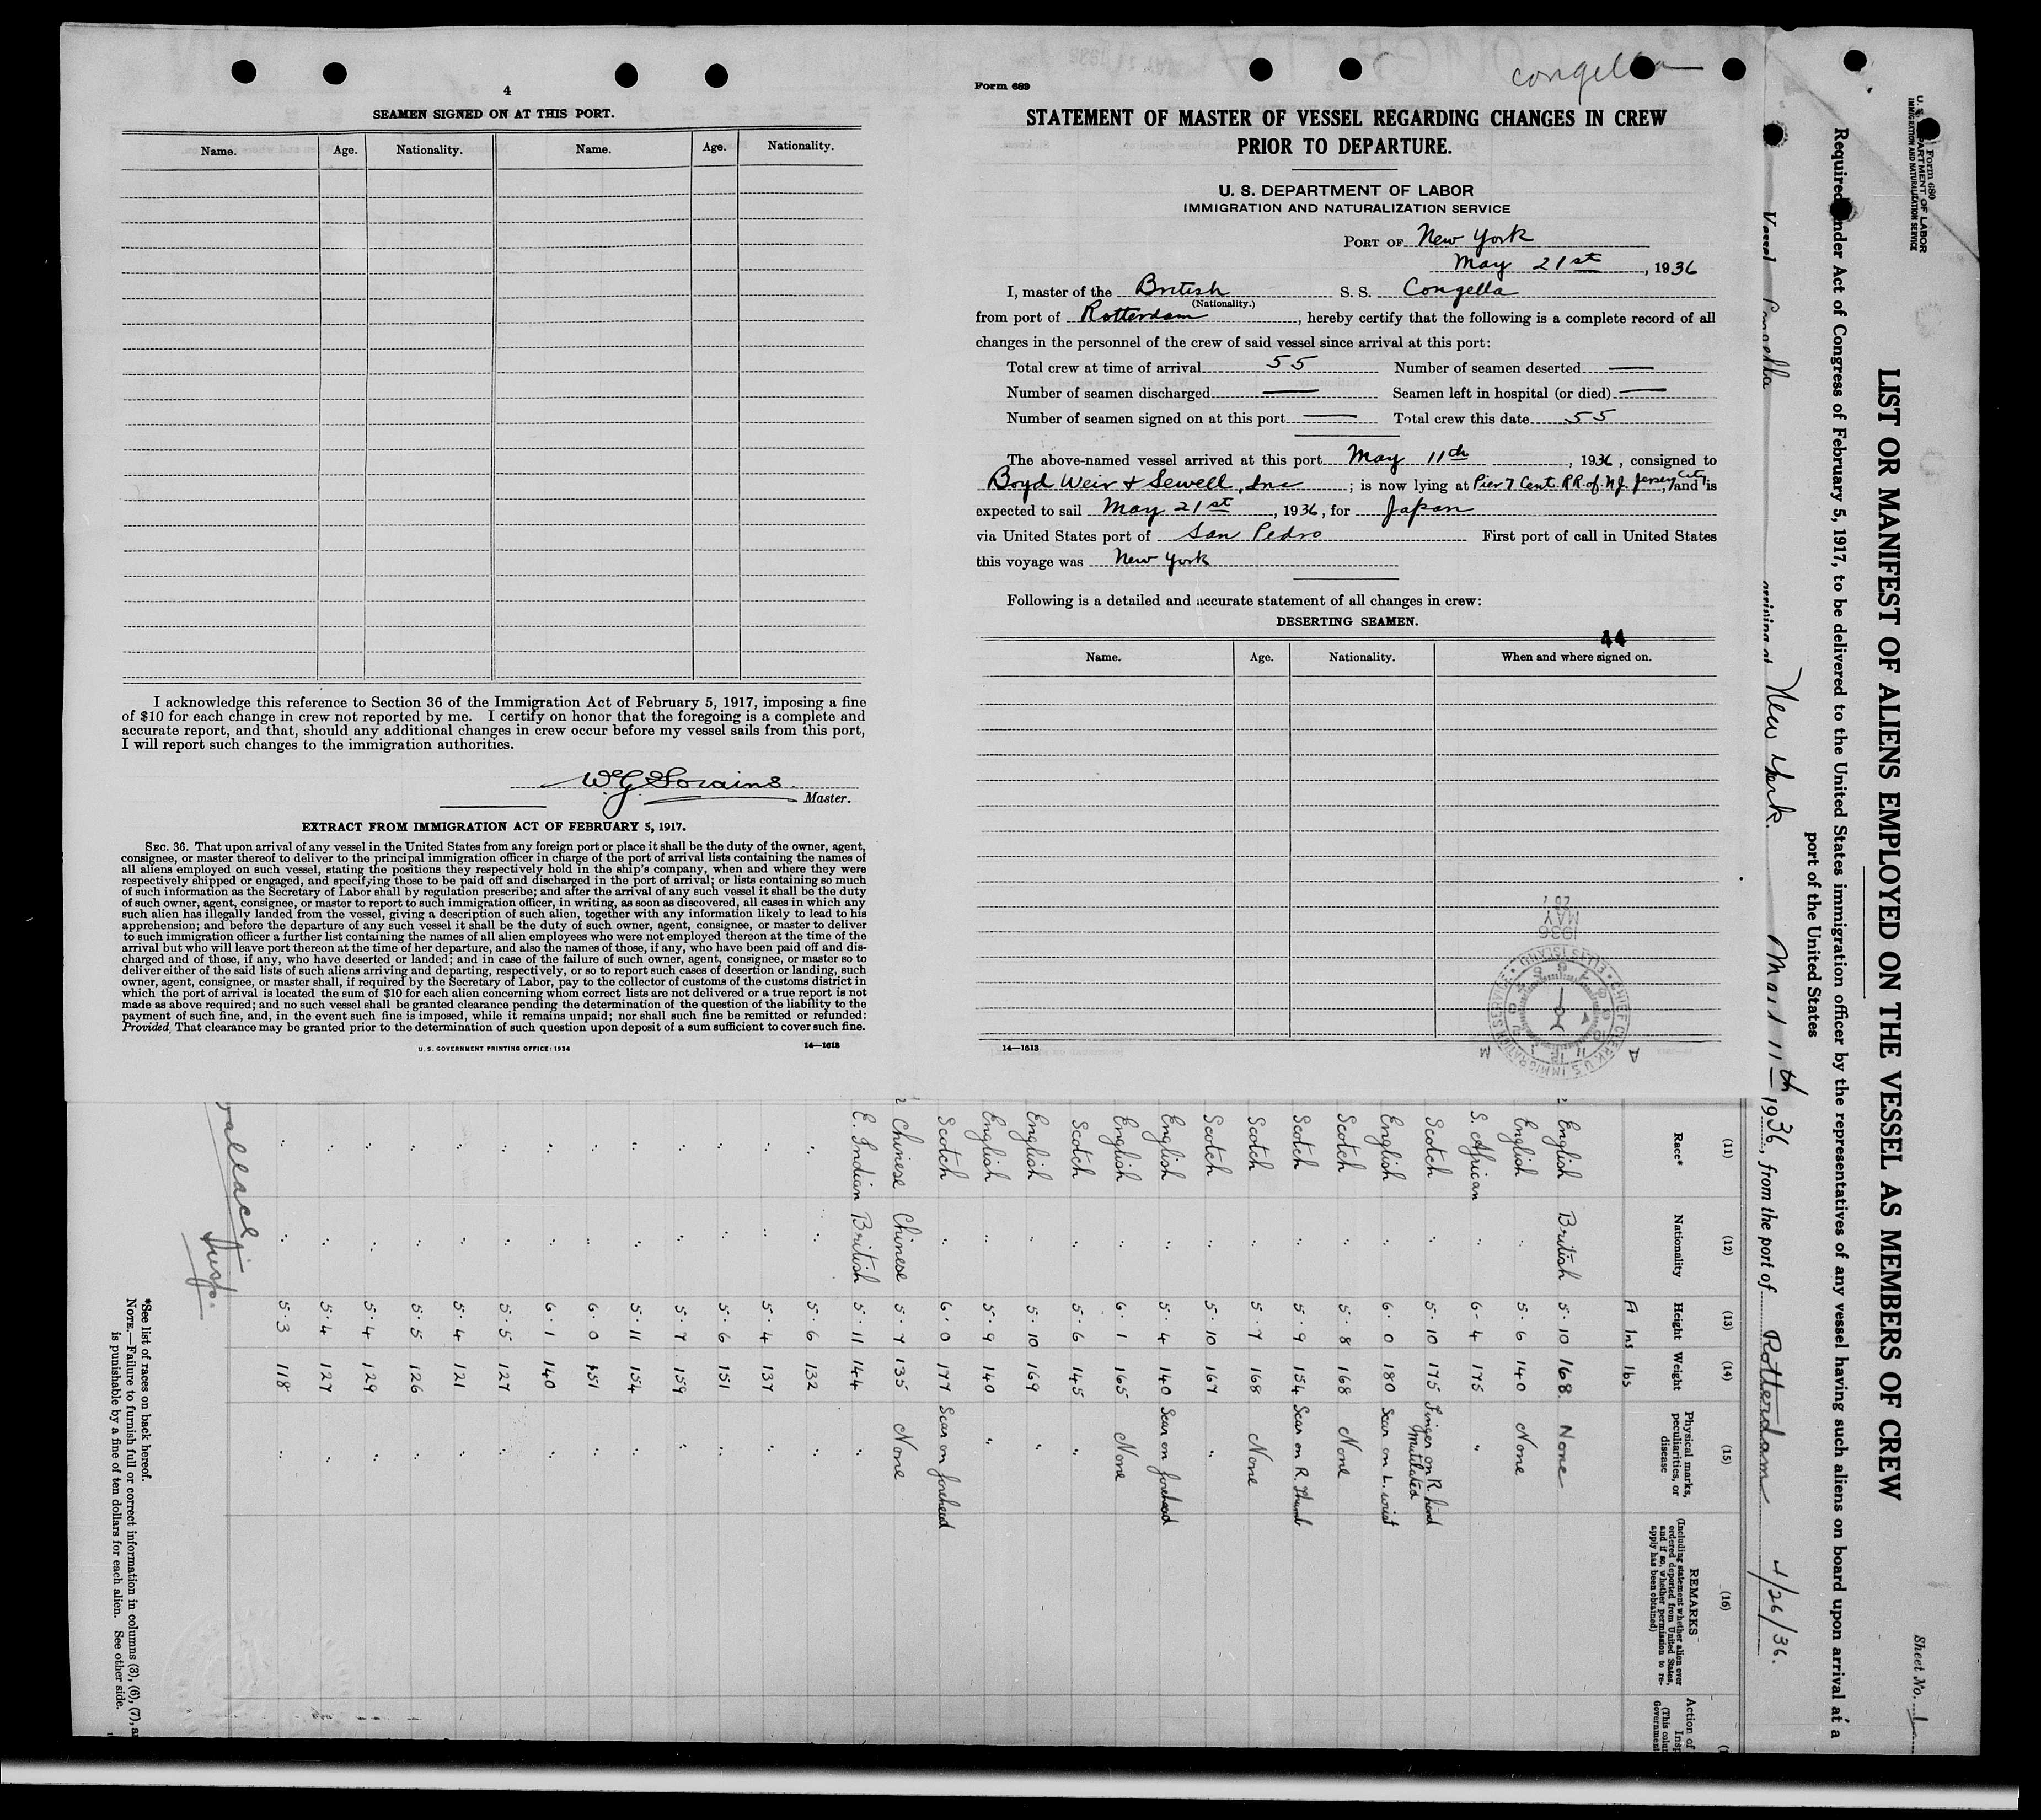 4
SEAMEN SIGNED ON AT THIS PORT.
Name. Age. Nationality. Name. Age. Nationality.
I acknowledge this reference to Section 36 of the Immigration Act of February 5, 1917, imposing a fine
of $10 for each change in crew not reported by me. I certify on honor that the foregoing is a complete and
accurate report, and that, should any additional changes in crew occur before my vessel sails from this port,
I will report such changes to the immigration authorities.
Master.
EXTRACT FROM IMMIGRATION ACT OF FEBRUARY 5, 1917.
SEC. 36. That upon arrival of any vessel in the United States from any foreign port or place it shall be the duty of the owner, agent,
consignee, or master thereof to deliver to the principal immigration officer in charge of the port of arrival lists containing the names of
all aliens employed on such vessel, stating the positions they respectively hold in the ship's company, when and where they were
respectively shipped or engaged, and specifying those to be paid off and discharged in the port of arrival; or lists containing so much
of such information as the Secretary of Labor shall by regulation prescribe; and after the arrival of any such vessel it shall be the duty
of such owner, agent, consignee, or master to report to such immigration officer, in writing, as soon as discovered, all cases in which any
such alien has illegally landed from the vessel, giving a description of such alien, together with any information likely to lead to his
apprehension; and before the departure of any such vessel it shall be the duty of such owner, agent, consignee, or master to deliver
to such immigration officer a further list containing the names of all alien employees who were not employed thereon at the time of the
arrival but who will leave port thereon at the time of her departure, and also the names of those, if any, who have been paid off and dis-
charged and of those, if any, who have deserted or landed; and in case of the failure of such owner, agent, consignee, or master so to
deliver either of the said lists of such aliens arriving and departing, respectively, or so to report such cases of desertion or landing, such
owner, agent, consignee, or master shall, if required by the Secretary of Labor, pay to the collector of customs of the customs district in
which the port of arrival is located the sum of $10 for each alien concerning whom correct lists are not delivered or a true report is not
made as above required; and no such vessel shall be granted clearance pending the determination of the question of the liability to the
payment of such fine, and, in the event such fine is imposed, while it remains unpaid; nor shall such fine be remitted or refunded:
Provided, That clearance may be granted prior to the determination of such question upon deposit of a sum sufficient to cover such fine.
U. S. GOVERNMENT PRINTING OFFICE: 1934 14—1613
Congella
Form 689
STATEMENT OF MASTER OF VESSEL REGARDING CHANGES IN CREW
PRIOR TO DEPARTURE.
U. S. DEPARTMENT OF LABOR
IMMIGRATION AND NATURALIZATION SERVICE
PORT OF New York
May 21st, 1936
I, master of the British S. S. Congella
(Nationality.)
from port of Rotterdam, hereby certify that the following is a complete record of all
changes in the personnel of the crew of said vessel since arrival at this port:
Total crew at time of arrival 55 Number of seamen deserted —
Number of seamen discharged — Seamen left in hospital (or died) —
Number of seamen signed on at this port — Total crew this date 55
The above-named vessel arrived at this port May 11th, 1936, consigned to
Boyd Weir & Sewell, Inc; is now lying at Pier 7 Cent. R.R. of N.J. Jersey City, and is
expected to sail May 21st, 1936, for Japan
via United States port of San Pedro First port of call in United States
this voyage was New York
Following is a detailed and accurate statement of all changes in crew:
DESERTING SEAMEN.
44
Name. Age. Nationality. When and where signed on.
1936
MAY
26
CHIEF CLERK, U.S. IMMIGRATION SERVICE • ELLIS ISLAND •
14—1613
Form 680
U. S. DEPARTMENT OF LABOR
IMMIGRATION AND NATURALIZATION SERVICE
Sheet No. 1
LIST OR MANIFEST OF ALIENS EMPLOYED ON THE VESSEL AS MEMBERS OF CREW
Required under Act of Congress of February 5, 1917, to be delivered to the United States immigration officer by the representatives of any vessel having such aliens on board upon arrival at a
port of the United States
Vessel Congella arriving at New York. 11th 1936, from the port of Rotterdam 4/26/36.
(11) (12) (13) (14) (15) (16)
Race* Nationality Height Weight Physical marks, peculiarities, or disease REMARKS (Including statement whether alien ever ordered deported from United States, and if so, whether permission to re-apply has been obtained) Action of
Ft Ins lbs
English British 5·10 168 None
English " 5·6 140 None
S. African " 6·4 175 "
Scotch " 5·10 175 Finger on R. hand mutilated
English " 6·0 180 Scar on L. wrist
Scotch " 5·8 168 None
Scotch " 5·9 154 Scar on R. Thumb
Scotch " 5·7 168 None
Scotch " 5·10 167 "
English " 5·4 140 Scar on forehead
English " 6·1 165 None
Scotch " 5·6 145 "
English " 5·10 169 "
English " 5·9 140 "
Scotch " 6·0 177 Scar on forehead
Chinese Chinese 5·7 135 None
E. Indian British 5·11 144 "
" " 5·6 132 "
" " 5·4 137 "
" " 5·6 151 "
" " 5·7 159 "
" " 5·11 154 "
" " 6·0 151 "
" " 6·1 140 "
" " 5·5 127 "
" " 5·4 121 "
" " 5·5 126 "
" " 5·4 129 "
" " 5·4 127 "
" " 5·3 118 "
Insp.
*See list of races on back hereof.
NOTE.—Failure to furnish full or correct information in columns (3), (6), (7),
is punishable by a fine of ten dollars for each alien. See other side.